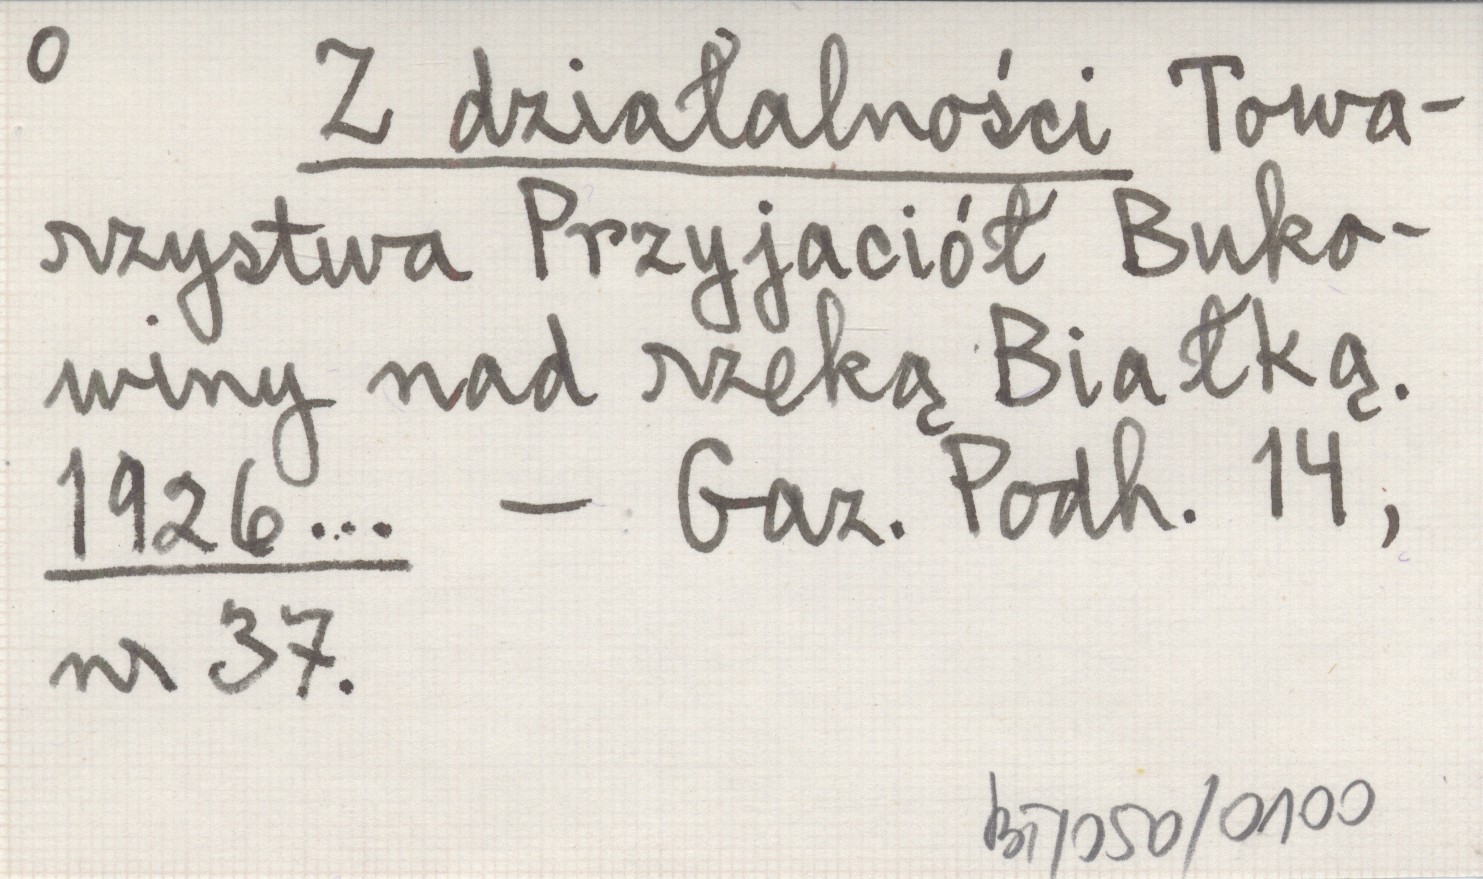 0 Z działalności Towa-
rzystwa Przyjaciół Buko-
winy nad rzeką Białką.
1926... - Gaz. Podh. 14,
nr 37.
BI/050/0100